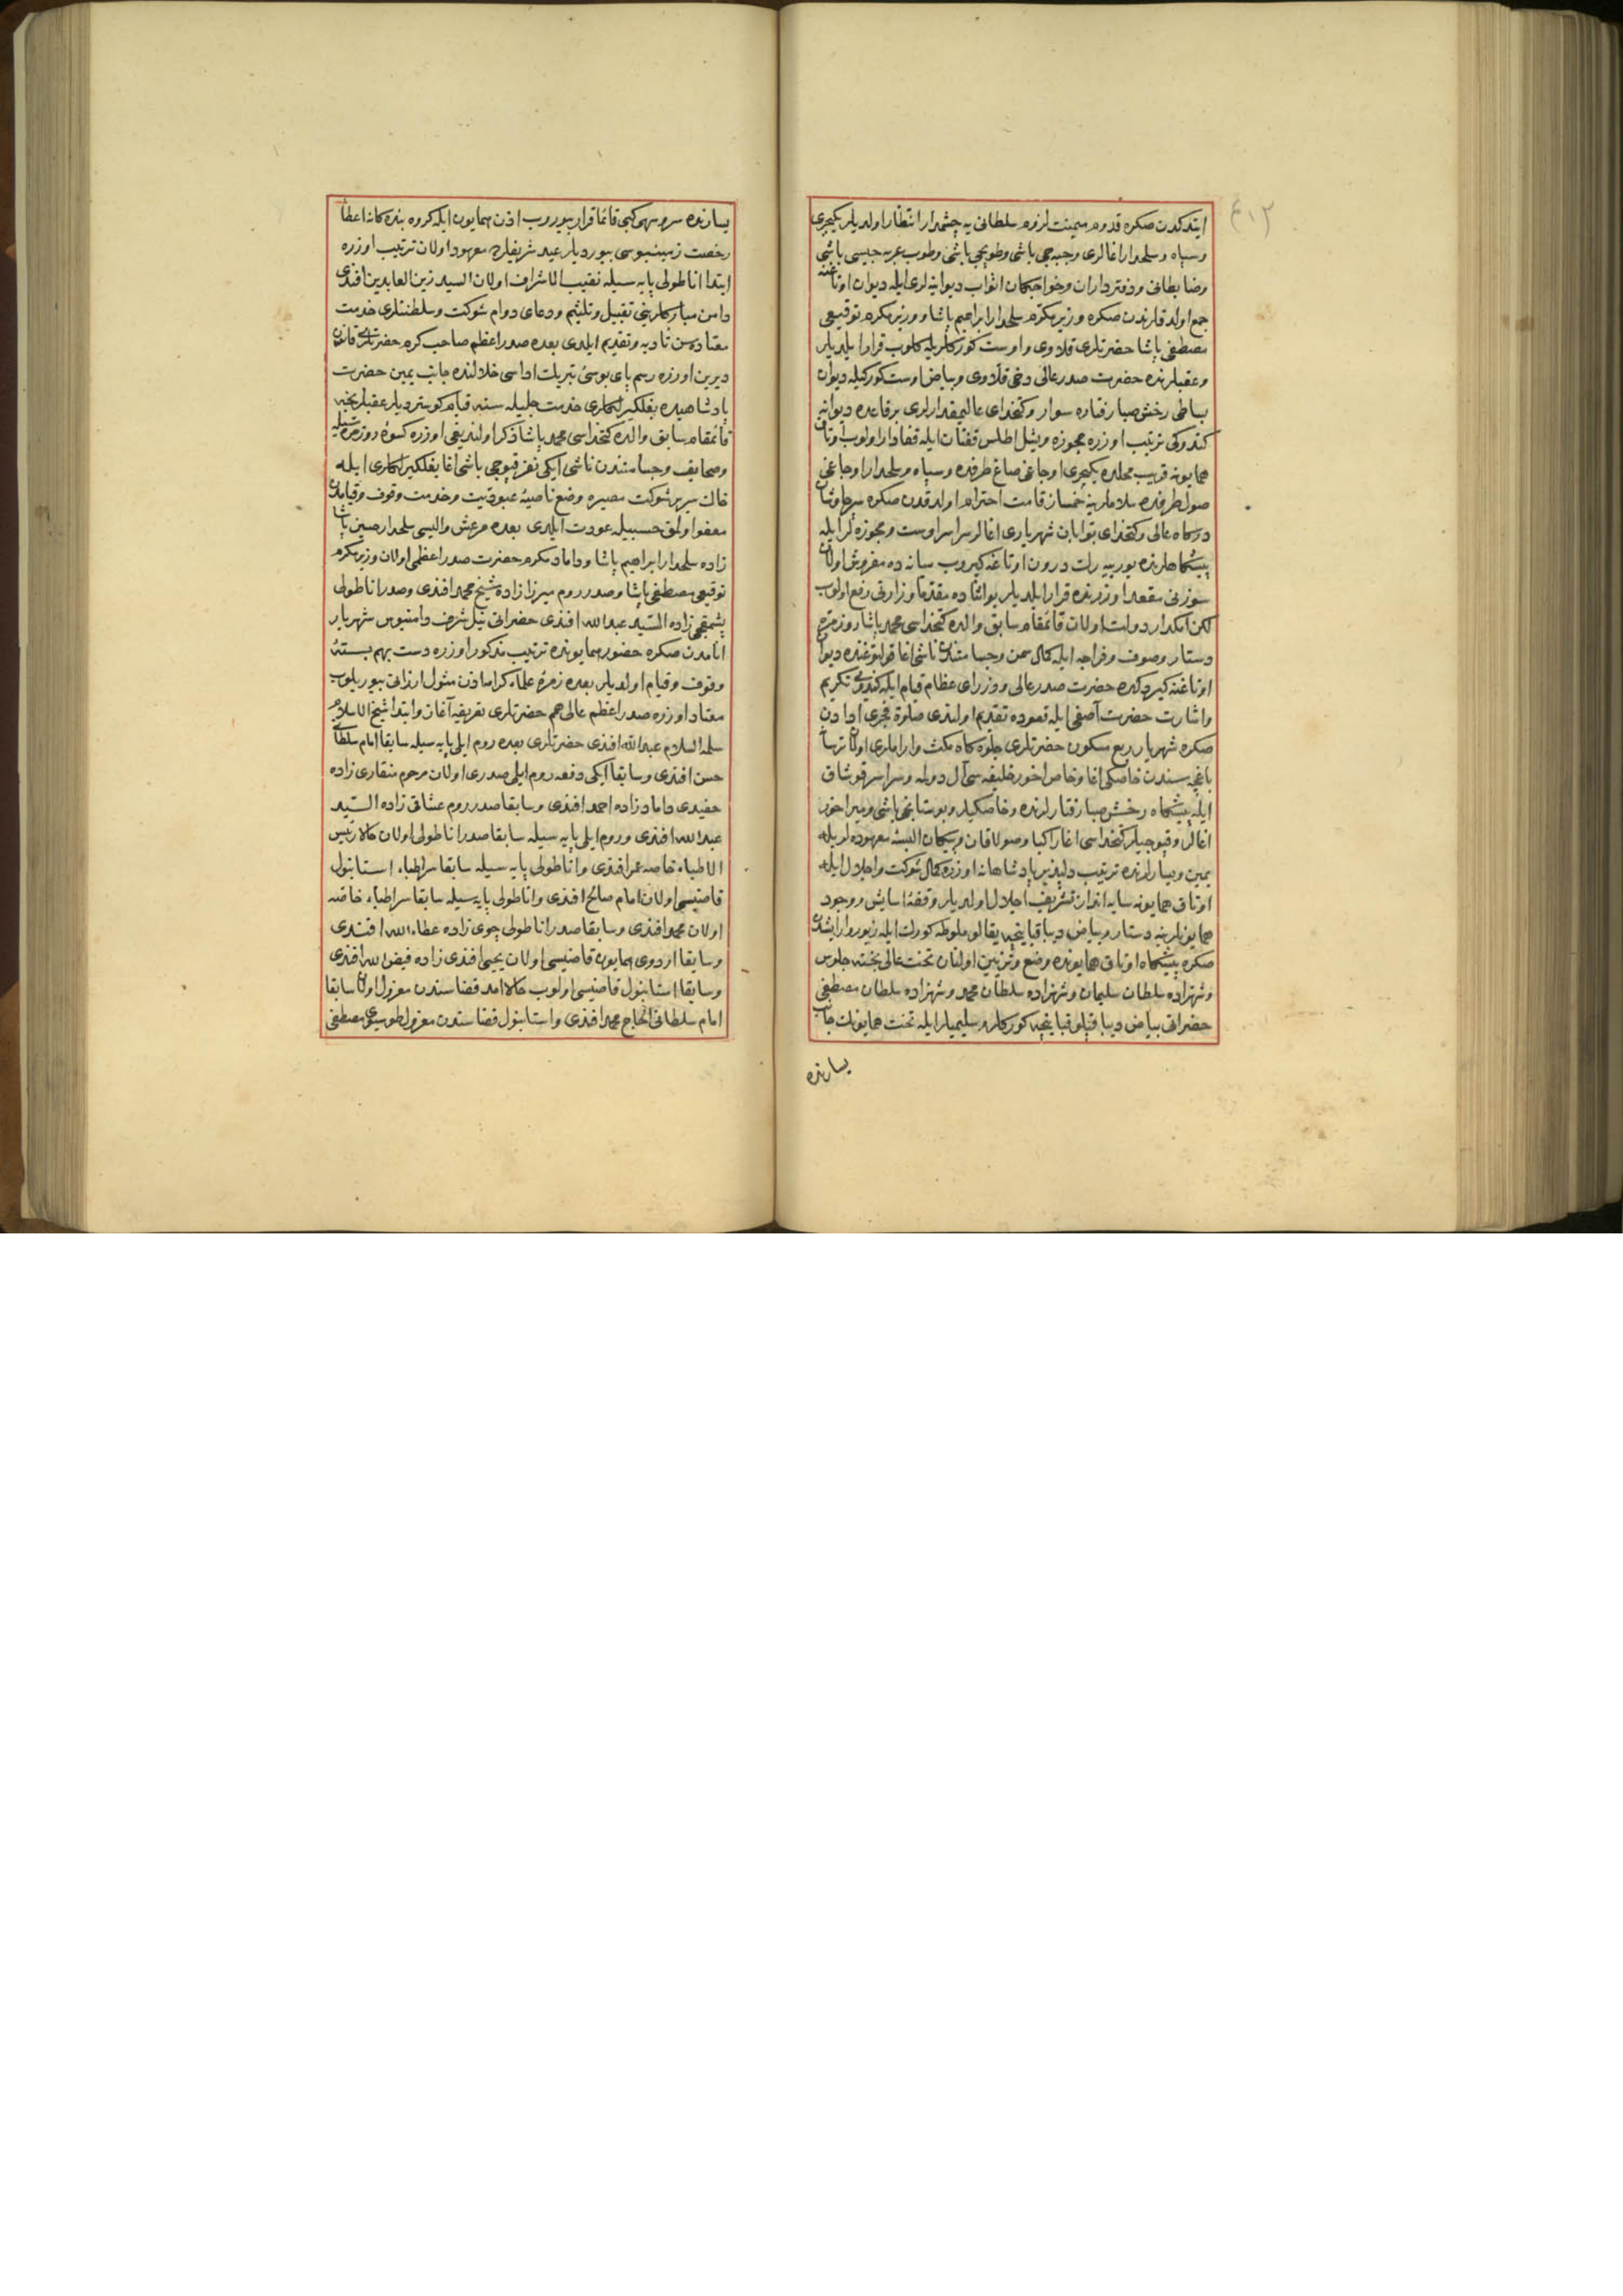 ٤١٢
ایتدکدن صکره قدوم میمنت لزوم سلطانی یه چشمدار انتظار اولدیلر یکیچری
وسپاه وسلحدار اغالری وجبه جی باشی وطوپجی باشی وطوپ عربه جیسی باشی
وضابطانی ودفترداران وخواجکان اثواب دیوانیه لری ایله دیوان اوتاغنه
جمع اولدقلرندن صکره وزیر مکرم سلحدار ابراهیم پاشا ووزیر مکرم توقیعی
مصطفی پاشا حضرتلری قلاوی واوست کورکلریله کلوب قرار ایلدیلر
وعقبلرنده حضرت صدر عالی دخی قلاوی وبیاض اوست کورکیله دیوان
بساطی رخش صبا رفتاره سوار وکتخدای عالیمقدارلری بر قاعده دیوانیه
کندوکی ترتیب اوزره مجوزه ویشل اطلس قفتان ایله قفادار اولوب اوتاق
همایونه قریب محلده یکیچری اوجاغی صاغ طرفده وسپاه وسلحدار اوجاغی
صول طرفده سلاملرینه خمساز قامت احترام اولدقدن صکره
درکاه عالی وکتخدای بوابان شهریاری اغالر سراسر اوست ومجوزه لر ایله
پیشکاهلرنده یورییه رك درون اوتاغه کیروب میانه ده مفروش اولان
سوزنی مقعد اوزرنده قرار ایلدیلر بو اثناده مقدما وزارتی رفع اولنوب
لکن امکدار دولت اولان قائمقام سابق والده کتخداسی محمد پاشا روزمره
دستار وصوف وفراجه ایله کمال سمن وجسامتدن ناشی اغا قولتوغنده دیوان
اوتاغنه کیردکده حضرت صدر عالی ووزرای عظام قیام ایله کندویی تکریم
واشارت حضرت آصفی ایله قعوده تقدیم اولندی صلوة فجری ادادن
صکره شهریار ربع مسکون حضرتلری جلوه کاه مکث وآراملری اولان ترسا
باغچه سندن خاصکی اغا وخاص اخور خلیفه سی آل دولمه وسراسر قوشاق
ایله پیشکاه رخش صبا رفتارلرنده وخاصکیلر وبوستانجی باشی ومیراخور
اغالر وقپوجیلر کتخداسی اغا رکبا وصولاقان وپیکان البسه معهوده لریله
یمین ویسارلرنده ترتیب دلپذیر پادشاهانه اوزره کمال شوکت واجلال ایله
اوتاق همایونه سایه انداز تشریف اجلال اولدیلر وقفه اسایش وجود
همایونلرینه دستار وبیاض دیبا قبانیچه یقالو ملوطه کورك ایله زیور وآرایشدن
صکره پیشکاه اوتاق همایونده وضع وتزیین اولنان تخت عالی بخته جلوس
وشهزاده سلطان سلیمان وشهزاده سلطان محمد وشهزاده سلطان مصطفی
حضراتی بیاض دیبا قپلو قبانیچه کورکلر وسلیمیلر ایله تخت همایونك جانب
یسارنده
یسارنده سرو سهی کبی قائما قرار بیوروب اذن همایون ایله کروه بندکانه اعطا
رخصت زمینبوسی بیوردیلر عید شریفلرده معهود اولان ترتیب اوزره
ابتدا اناطولی پایه سیله نقیب الاشراف اولان السید زین العابدین افندی
دامن مبارکلرینی تقبیل وتلثیم ودعای دوام شوکت وسلطنتلری خدمت
معتاده سن تادیه وتقدیم ایلدی بعده صدر اعظم صاحب کرم حضرتلری قانون
دیرین اوزره رسم پای بوسئ تبریك اداسی خلالنده جانب یمین حضرت
پادشاهیده بغلکیرلکلری خدمت جلیله سنه قیام کوستردیلر عقبلرینجه
قائمقام سابق والده کتخداسی محمد پاشا ذکر اولندیغی اوزره کسوه روزمره سیله
وضعایف وجسامتندن ناشی ایکی نفر قپوجی باشی اغا بغلکیرلکلری ایله
خاك سریر شوکت مصیره وضع ناصیه عبودیت وخدمت وقوف وقیامدن
معفو اولمق حسبیله عودت ایلدی بعده مرعش والیسی سلحدار حسین پاشا
زاده سلحدار ابراهیم پاشا وداماد مکرم حضرت صدر اعظمی اولان وزیر مکرم
توقیعی مصطفی پاشا وصدر روم میرزا زاده شیخ محمد افندی وصدر اناطولی
پشمقجی زاده السید عبدالله افندی حضراتی نیل شرف دامنبوس شهریار
انامدن صکره حضور همایونده ترتیب مذکور اوزره دست بهم بسته
وقوف وقیام اولدیلر بعده زمره علماء کرامه اذن مثول ارزانی بیوریلوب
معتاد اوزره صدر اعظم عالی همم حضرتلری تعریفه آغاز وابتدا شیخ الاسلام
سلمه السلام عبدالله افندی حضرتلری بعده روم ایلی پایه سیله سابقا امام سلطانی
حسن افندی وسابقا ایکی دفعه روم ایلی صدری اولان مرحوم منقاری زاده
حفیدی داماد زاده احمد افندی وسابقا صدر روم عشاقی زاده السید
عبدالله افندی وروم ایلی پایه سیله سابقا صدر اناطولی اولان حالا رئیس
الاطباء خاصه عمر افندی واناطولی پایه سیله سابقا سراطباء استانبول
قاضیسی اولان امام صالح افندی واناطولی پایه سیله سابقا سراطباء خاصه
اولان محمد افندی وسابقا صدر اناطولی چوی زاده عطاءالله افندی
وسابقا اردوی همایون قاضیسی اولان یحیی افندی زاده فیض الله افندی
وسابقا استانبول قاضیسی اولوب حالا امد قضاسندن معزول اولان سابقا
امام سلطانی الحاج محمد افندی واستانبول قضاسندن معزول طوسیوی مصطفی